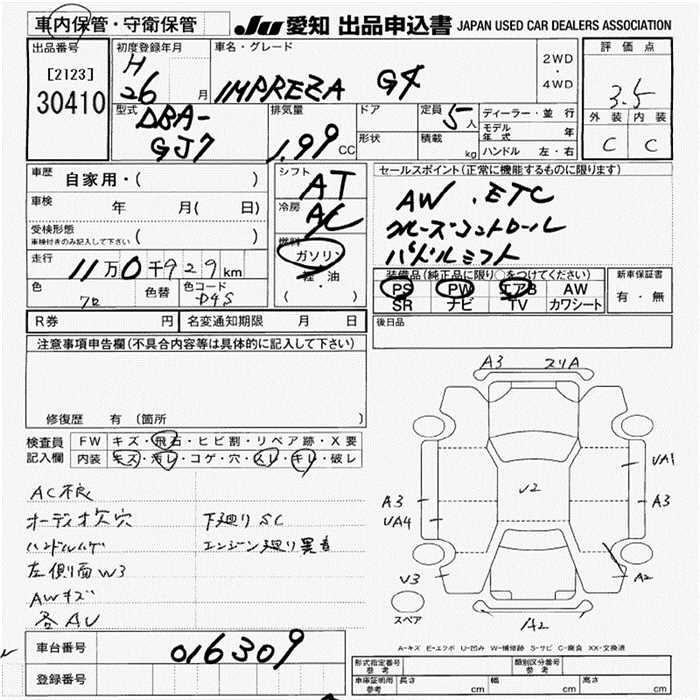 車内保管・守衛保管
JU 愛知 出品申込書 JAPAN USED CAR DEALERS ASSOCIATION
出品番号
[2123]
30410
初度登録年月
H
26 月
車名・グレード
IMPREZA G4
2WD
・
4WD
評価点
3.5
外装 内装
C C
型式
DBA-
GJ7
排気量
1.99 CC
ドア
形状
定員
5 人
積載
kg
ディーラー・並行
モデル年式 年
ハンドル 左・右
車歴
自家用・( )
車検 年 月( 日)
受検形態
車検付きのみ記入して下さい ( )
走行
11万0千929km
色
クロ
色替
色コード
D4S
シフト
AT
冷房
AC
燃料
ガソリン
軽・油
( )
セールスポイント(正常に機能するものに限ります)
AW . ETC
クルーズコントロール
パドルシフト
装備品(純正品に限り○をつけてください)
PS PW エアB AW
SR ナビ TV カワシート
新車保証書
有・無
R券 円
名変通知期限 月 日
後日品
注意事項申告欄(不具合内容等は具体的に記入して下さい)
修復歴 有 (箇所 )
検査員
記入欄
FW キズ・飛石・ヒビ割・リペア跡・X要
内装 キズ・汚レ・コゲ・穴・スレ・キレ・破レ
AC不良
オーディオ欠穴 下廻りSC
ハンドルハゲ エンジン廻り異音
左側面W3
AWキズ
各AU
A3 スリA
VA1
V2
A3
A3
VA4
V3
A2
スペア
1A2
A-キズ E-エクボ U-凹み W-補修跡 S-サビ C-腐食 XX-交換済
車台番号
016309
登録番号
形式指定番号
参考
類別区分番号
参考
車庫証明用
参考
長さ cm
幅 cm
高さ cm